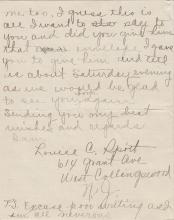 me too, I guess this is
all I want to say to
you and did you give him
that envelope I gave
you to give him and tell
us about Saturday evening
as we would be glad
to see you again.
Sending you my best
wishes and regards
Louise C. Spott
614 Grant Ave
West Collingswood
N.J.
P.S. Excuse poor writing and
I'm all nervous